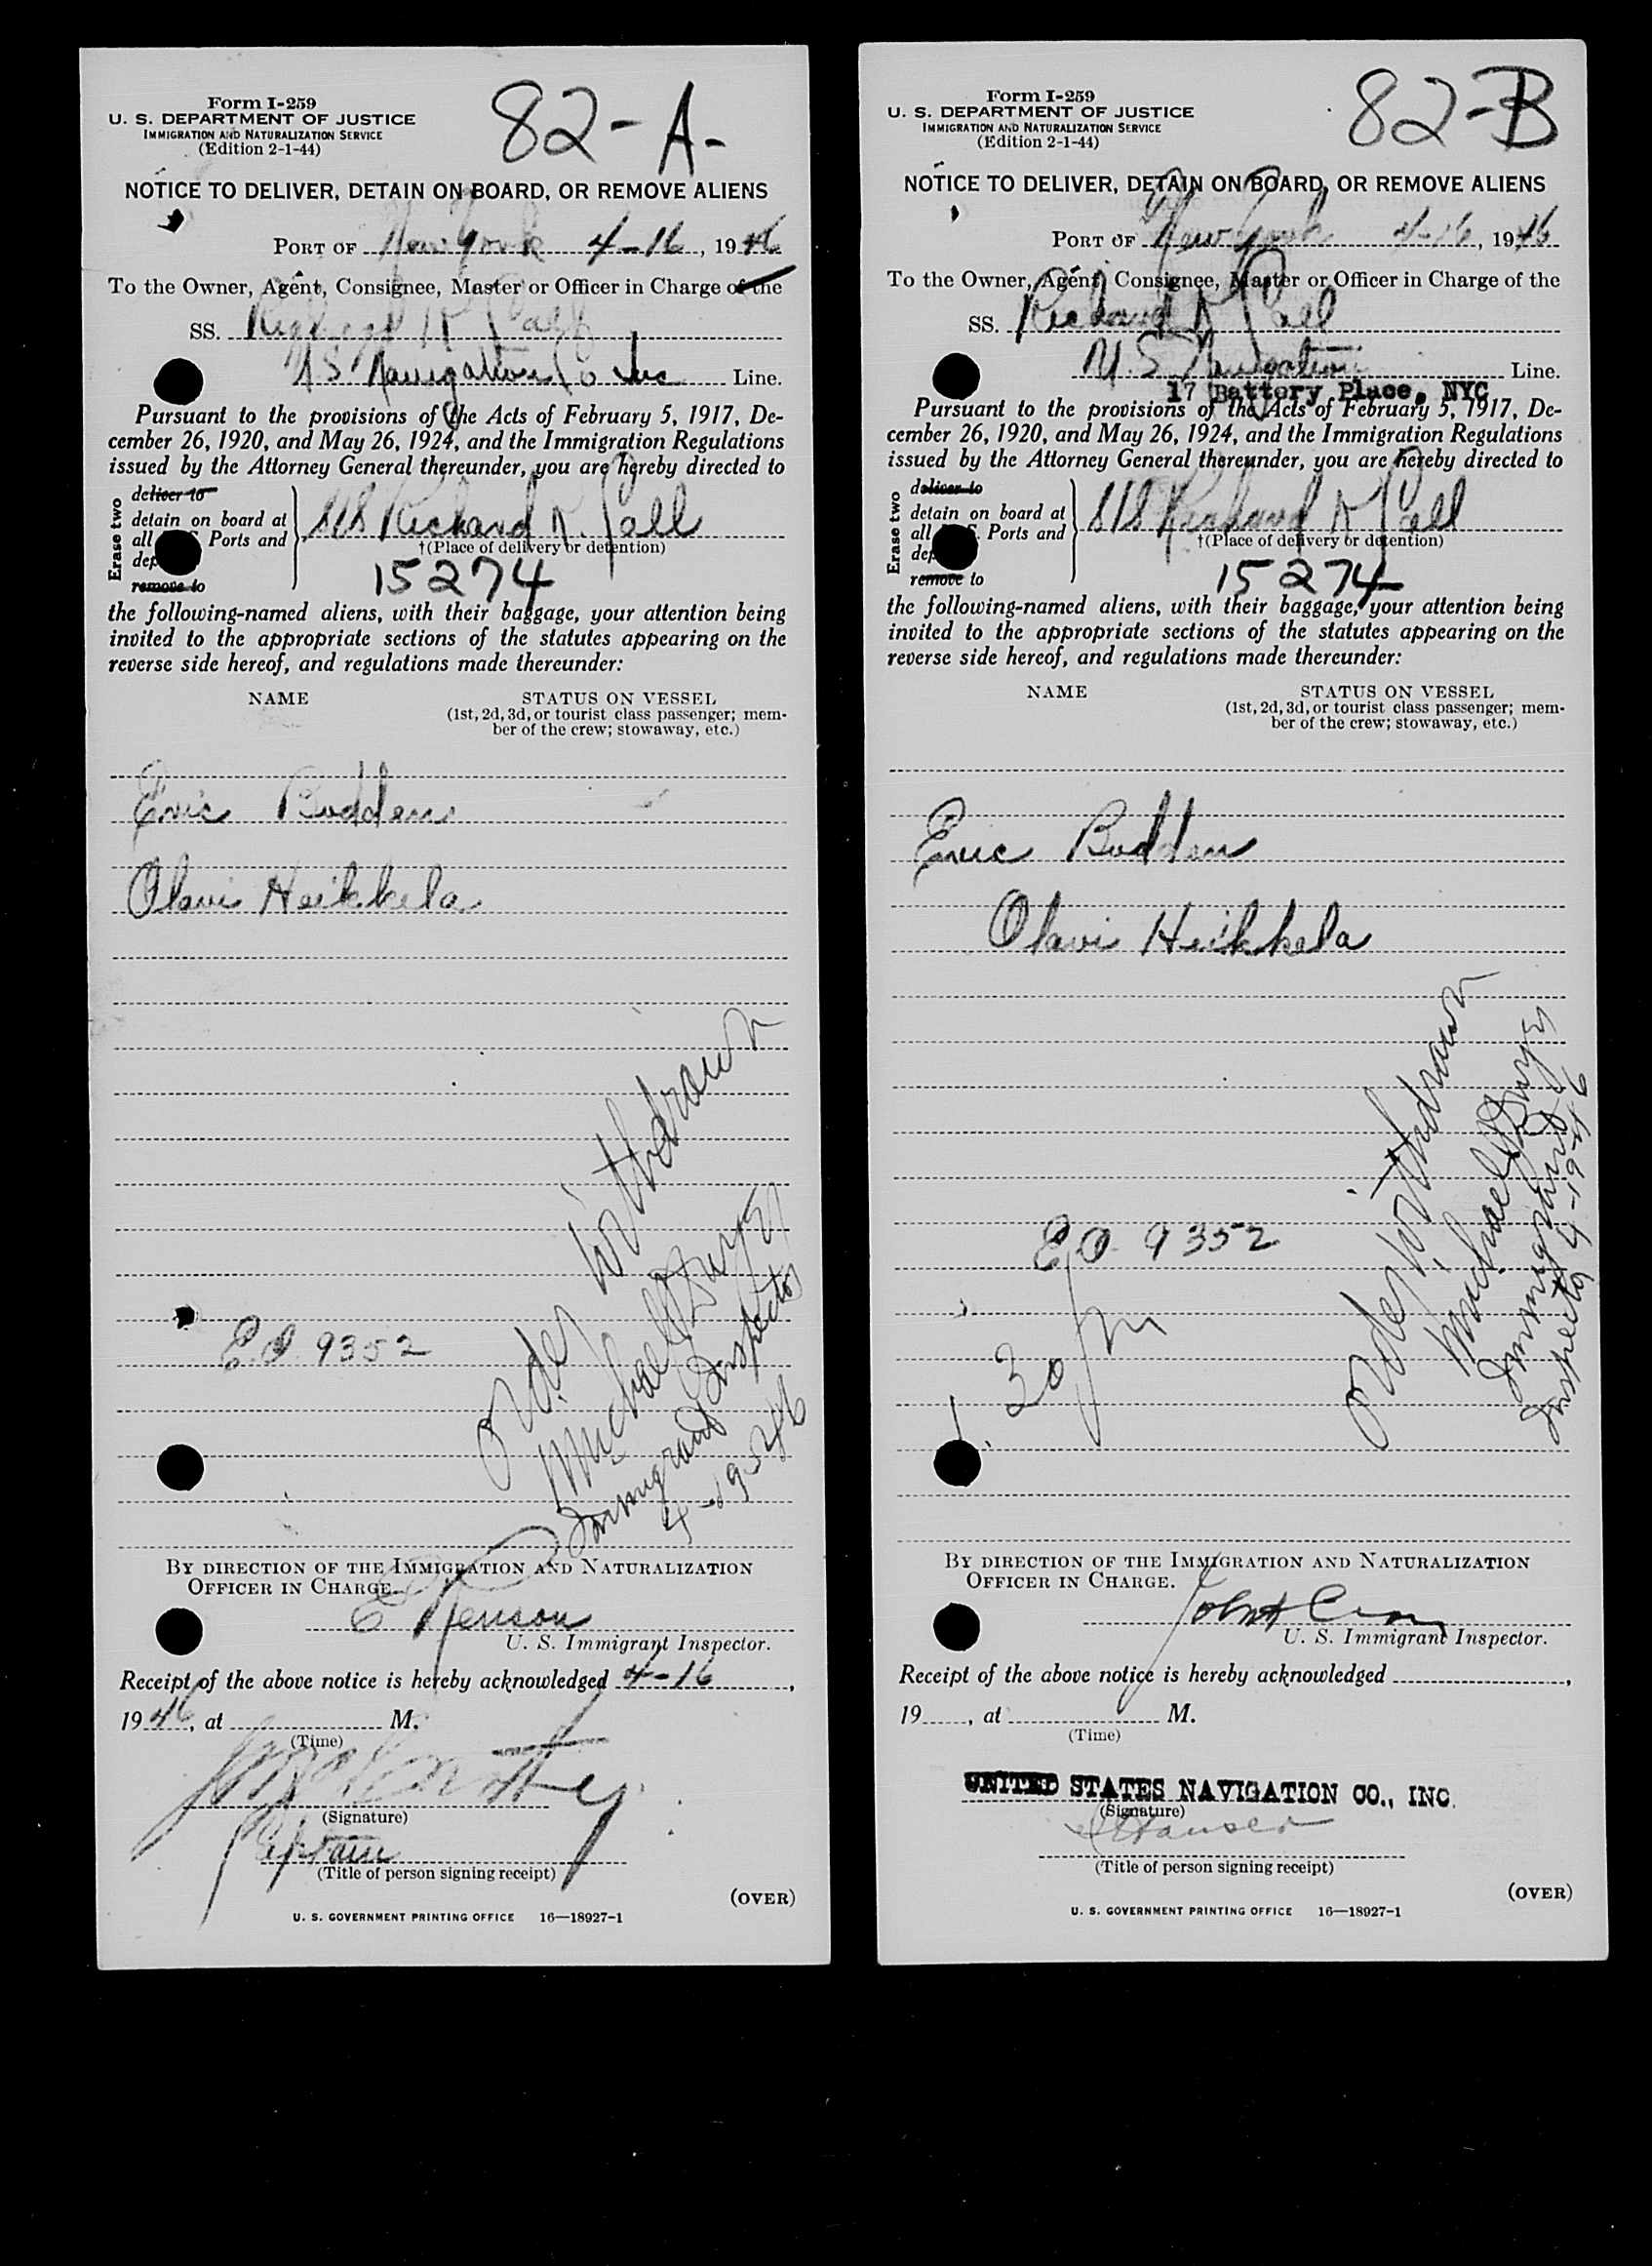 Form I-259
U. S. DEPARTMENT OF JUSTICE
IMMIGRATION AND NATURALIZATION SERVICE
(Edition 2-1-44)
82-A-
NOTICE TO DELIVER, DETAIN ON BOARD, OR REMOVE ALIENS
PORT OF New York 4-16, 1946
To the Owner, Agent, Consignee, Master or Officer in Charge of the
SS. Richard K Call
U S Navigation Co Inc Line.
Pursuant to the provisions of the Acts of February 5, 1917, De-
cember 26, 1920, and May 26, 1924, and the Immigration Regulations
issued by the Attorney General thereunder, you are hereby directed to
Erase two
deliver to
detain on board at
all S. Ports and
dep
remove to
S/S Richard K. Call
†(Place of delivery or detention)
15274
the following-named aliens, with their baggage, your attention being
invited to the appropriate sections of the statutes appearing on the
reverse side hereof, and regulations made thereunder:
NAME STATUS ON VESSEL
(1st, 2d, 3d, or tourist class passenger; mem-
ber of the crew; stowaway, etc.)
Eric Bodden
Olavi Heikkela
Order Withdrawn
Michael Dwyer
Immigrant Inspector
4-19-46
E.O. 9352
BY DIRECTION OF THE IMMIGRATION AND NATURALIZATION
OFFICER IN CHARGE.
U. S. Immigrant Inspector.
Receipt of the above notice is hereby acknowledged 4-16,
1946, at M.
(Time)
(Signature)
Captain
(Title of person signing receipt)
(OVER)
U. S. GOVERNMENT PRINTING OFFICE 16—18927-1
Form I-259
U. S. DEPARTMENT OF JUSTICE
IMMIGRATION AND NATURALIZATION SERVICE
(Edition 2-1-44)
82-B
NOTICE TO DELIVER, DETAIN ON BOARD, OR REMOVE ALIENS
PORT OF New York 4-16, 1946
To the Owner, Agent, Consignee, Master or Officer in Charge of the
SS. Richard K Call
U.S. Navigation Line.
17 Battery Place, NYC
Pursuant to the provisions of the Acts of February 5, 1917, De-
cember 26, 1920, and May 26, 1924, and the Immigration Regulations
issued by the Attorney General thereunder, you are hereby directed to
Erase two
deliver to
detain on board at
all S. Ports and
dep
remove to
S/S Richard K Call
†(Place of delivery or detention)
15274
the following-named aliens, with their baggage, your attention being
invited to the appropriate sections of the statutes appearing on the
reverse side hereof, and regulations made thereunder:
NAME STATUS ON VESSEL
(1st, 2d, 3d, or tourist class passenger; mem-
ber of the crew; stowaway, etc.)
Eric Bodden
Olavi Heikkela
Order Withdrawn
Michael Dwyer
Immigrant
Inspector 4-19-46
E.O. 9352
1.30 pm
BY DIRECTION OF THE IMMIGRATION AND NATURALIZATION
OFFICER IN CHARGE.
U. S. Immigrant Inspector.
Receipt of the above notice is hereby acknowledged ,
19 , at M.
(Time)
UNITED STATES NAVIGATION CO., INC.
(Signature)
(Title of person signing receipt)
(OVER)
U. S. GOVERNMENT PRINTING OFFICE 16—18927-1